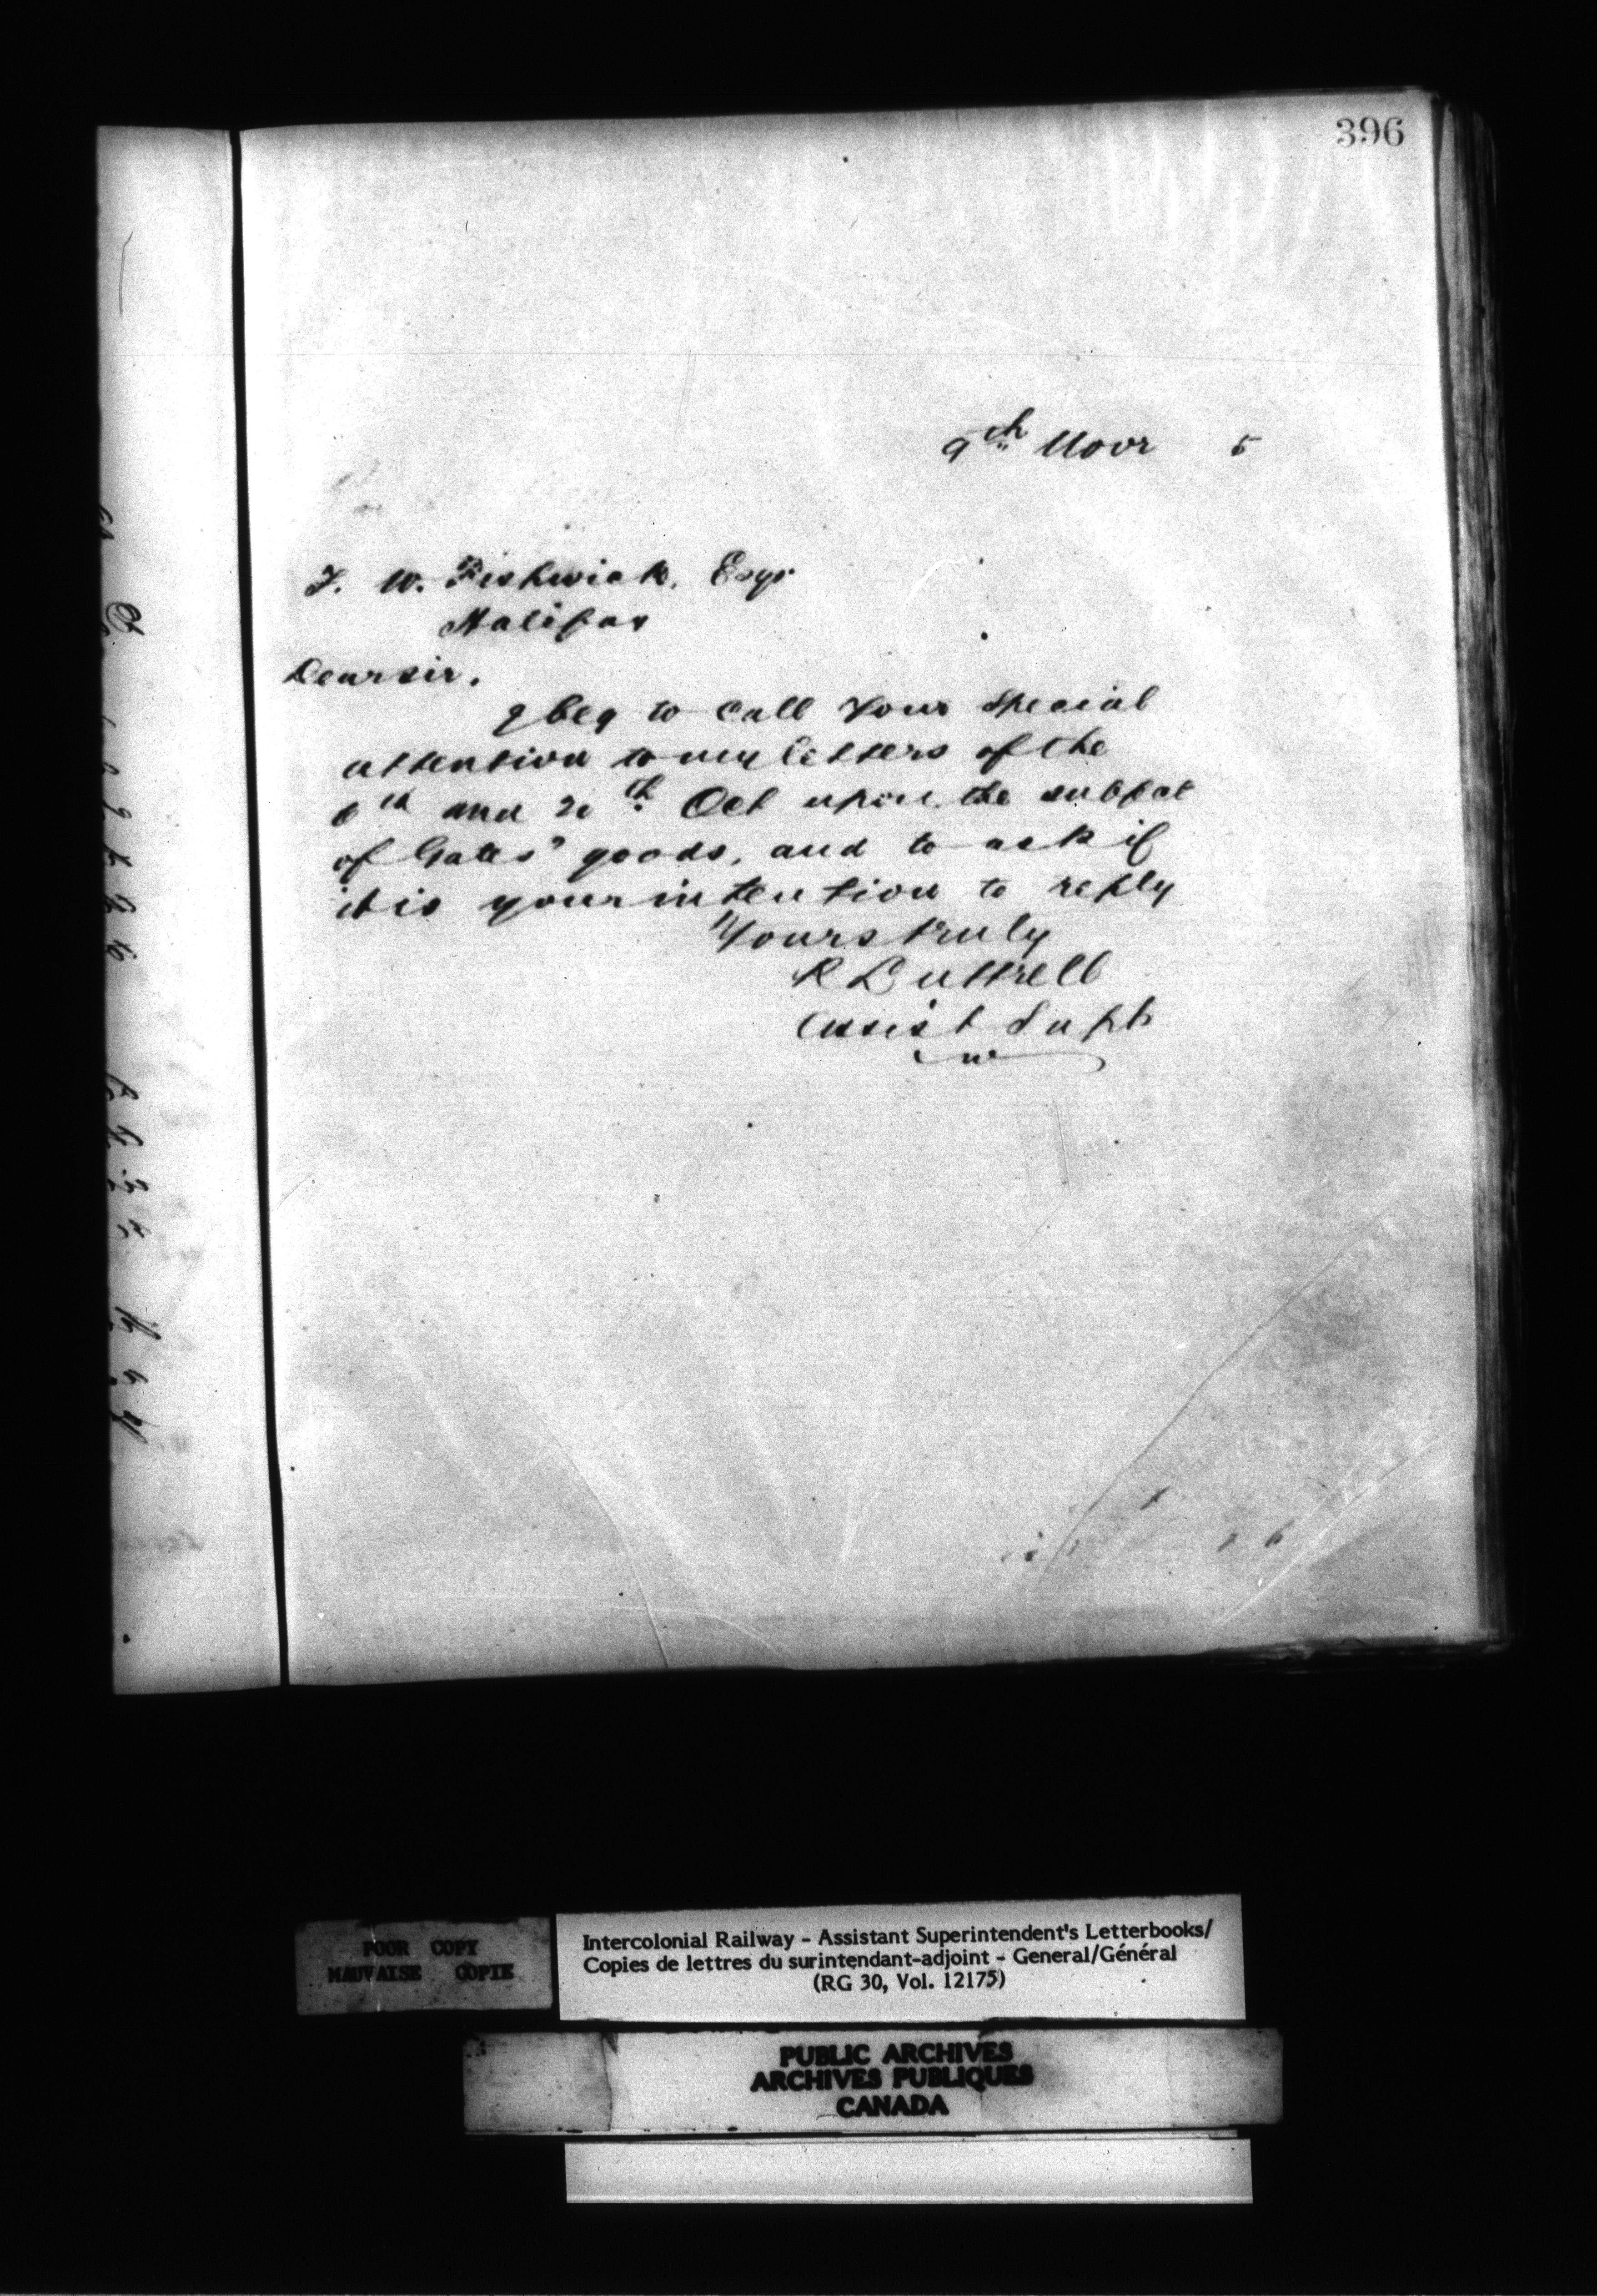 396
9th Novr 5
F. W. Fishwick, Esqr
Halifax
Dear sir.
I beg to call your special
attention to my letters of the
6th and 20th Oct upon the subject
of Gates' goods, and to ask if
it is your intention to reply
Yours truly
R Luttrell
Assist Supt
POOR COPY
MAUVAISE COPIE
Intercolonial Railway - Assistant Superintendent's Letterbooks/
Copies de lettres du surintendant-adjoint - General/Général
(RG 30, Vol. 12175)
PUBLIC ARCHIVES
ARCHIVES PUBLIQUES
CANADA